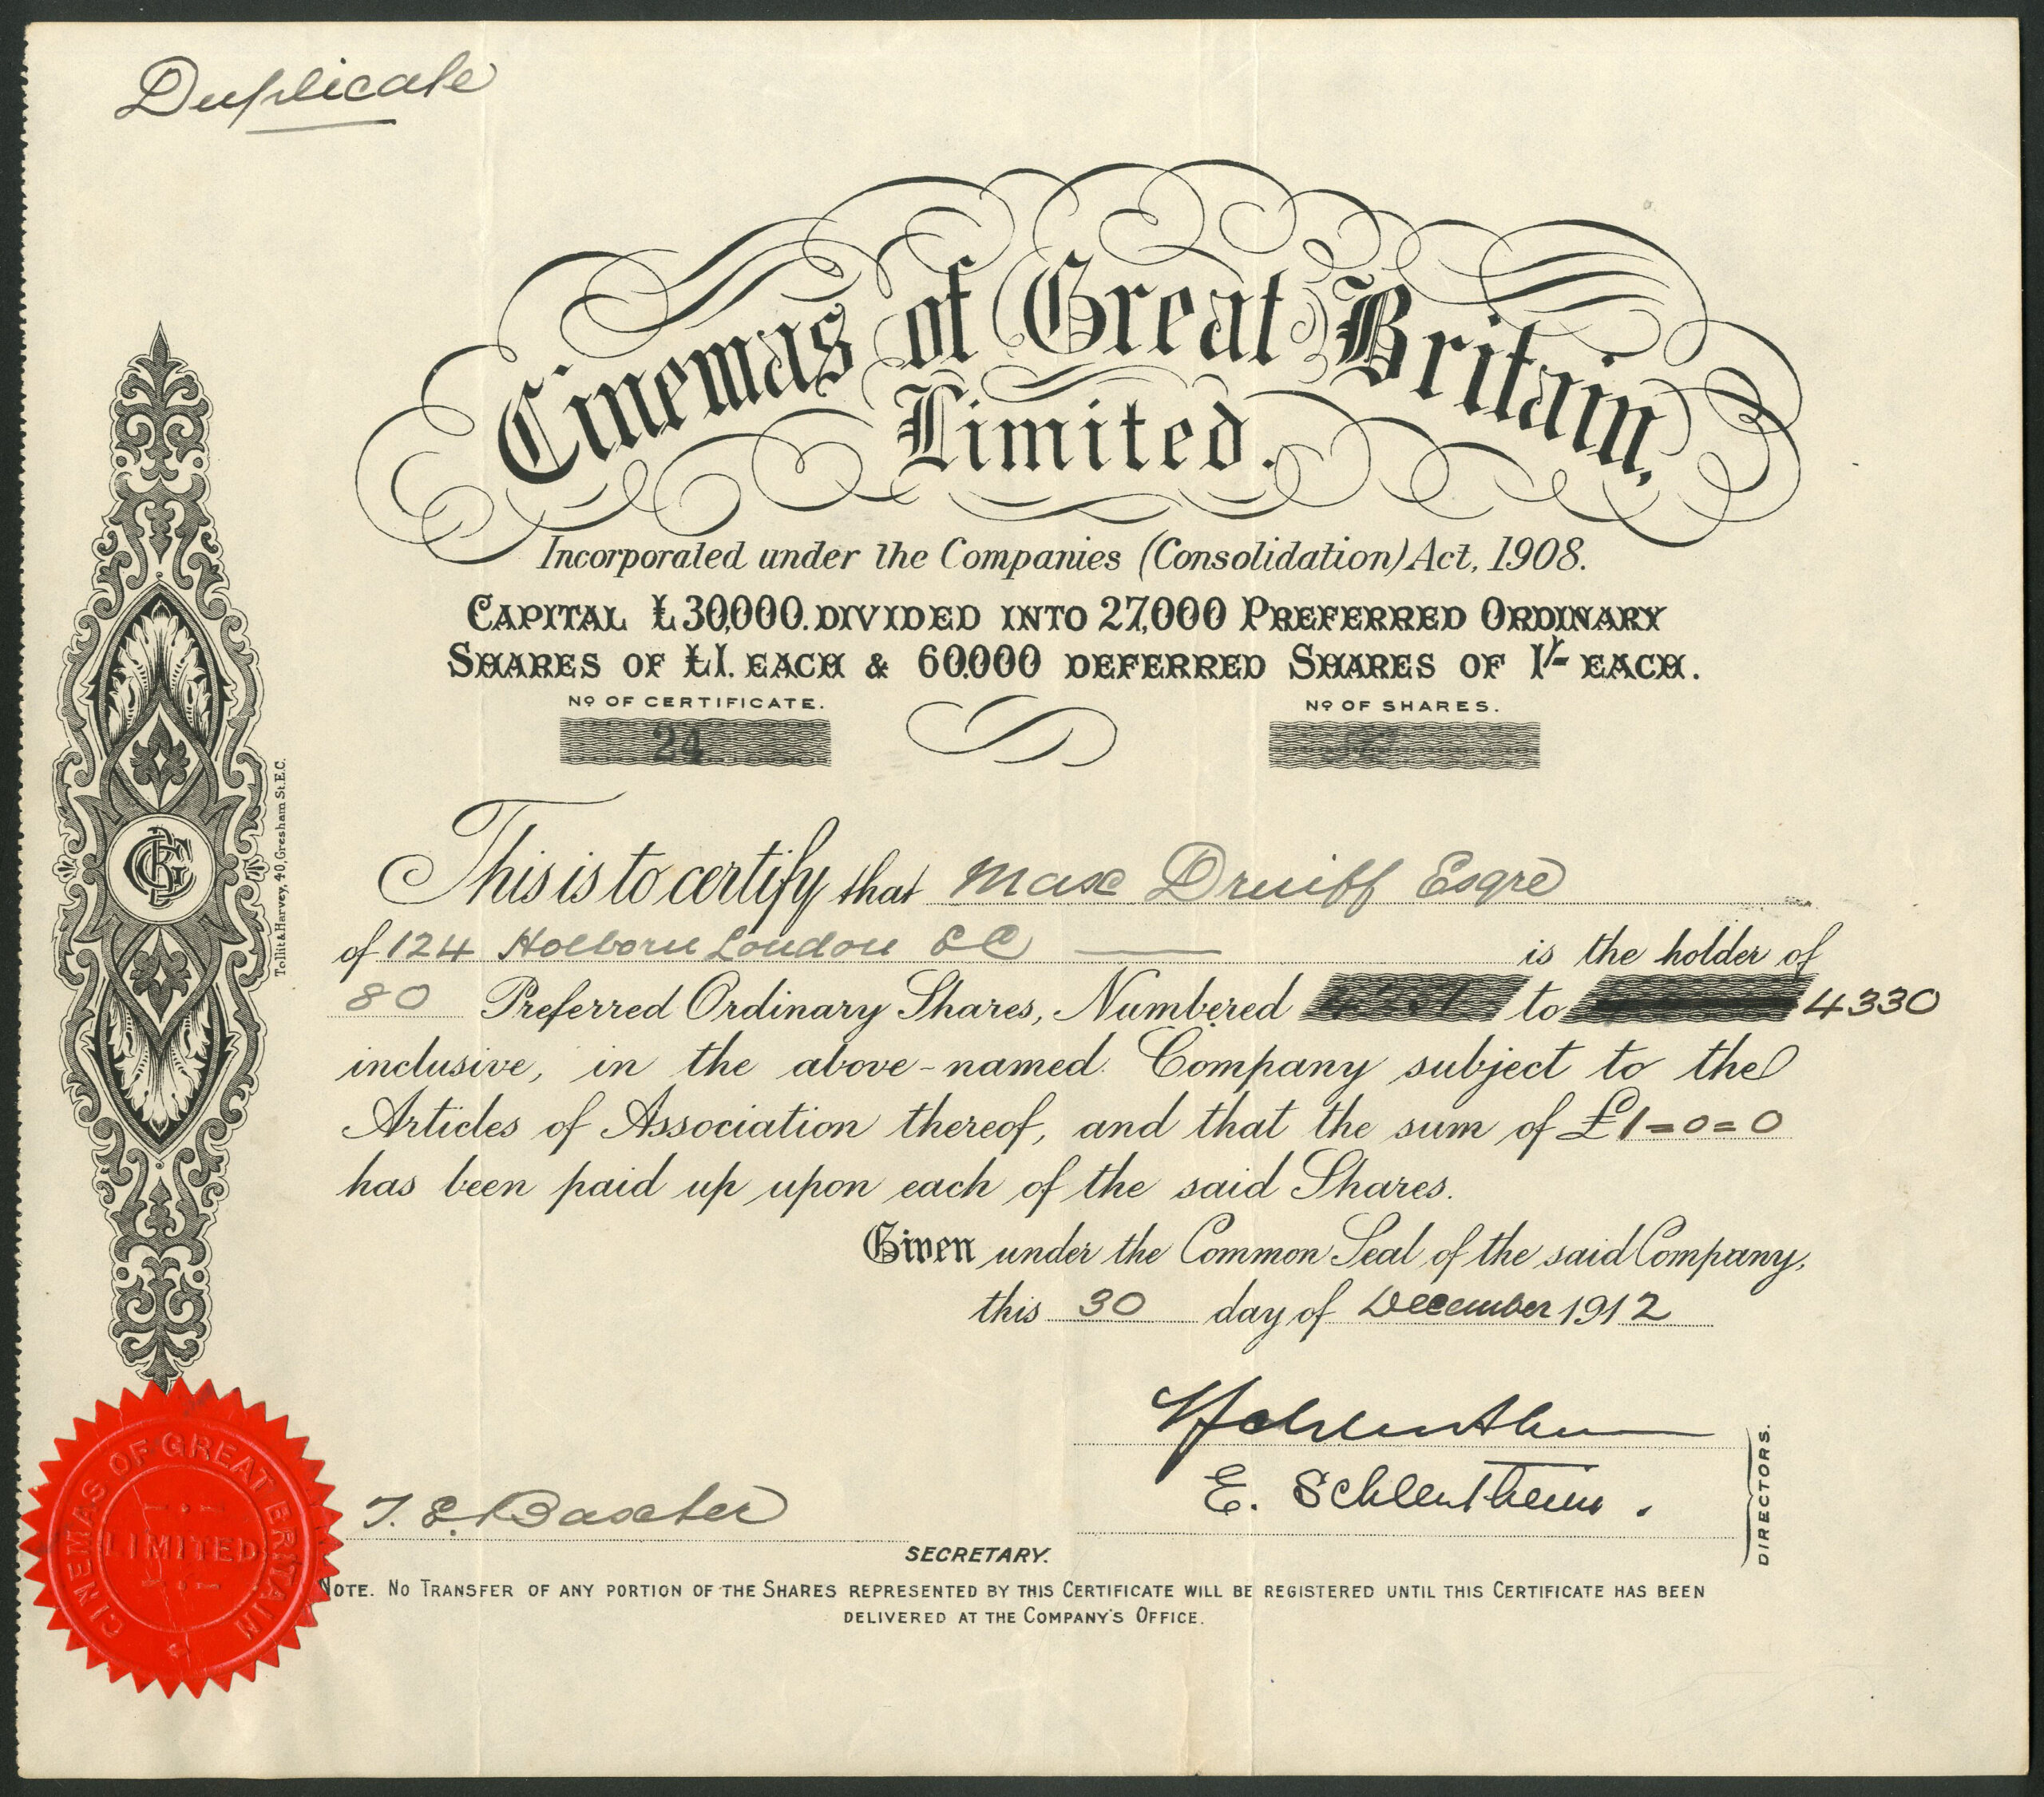 Duplicate
Cinemas of Great Britain,
Limited.
Incorporated under the Companies (Consolidation) Act, 1908.
CAPITAL £30,000. DIVIDED INTO 27,000 PREFERRED ORDINARY
SHARES OF £1. EACH & 60,000 DEFERRED SHARES OF 1/- EACH.
No OF CERTIFICATE.
24
No OF SHARES.
This is to certify that Max Druiff Esqre
of 124 Holborn London EC is the holder of
80 Preferred Ordinary Shares, Numbered to 4330
inclusive, in the above-named Company subject to the
Articles of Association thereof, and that the sum of £1=0=0
has been paid up upon each of the said Shares.
Given under the Common Seal of the said Company,
this 30 day of December 1912
E. Schlentheim.
DIRECTORS.
T. E. Baxter
SECRETARY.
NOTE. NO TRANSFER OF ANY PORTION OF THE SHARES REPRESENTED BY THIS CERTIFICATE WILL BE REGISTERED UNTIL THIS CERTIFICATE HAS BEEN
DELIVERED AT THE COMPANY'S OFFICE.
CINEMAS OF GREAT BRITAIN
LIMITED
Tollit & Harvey, 40, Gresham St. E.C.
CGB